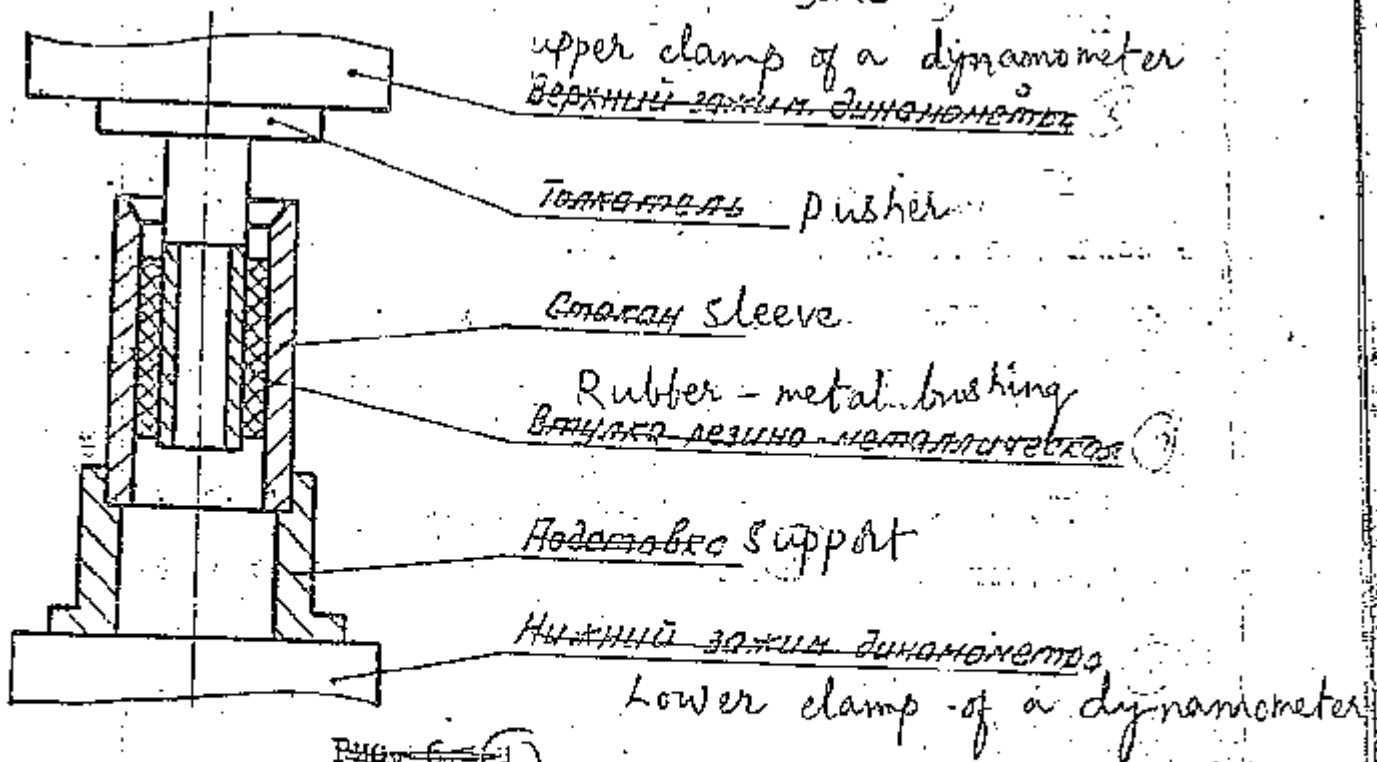 upper clamp of a dynamometer
Верхний зажим динамометра
Толкатель pusher
Стакан sleeve
Rubber - metal bushing
Втулка резино-металлическая
Подставка support
Нижний зажим динамометра
Lower clamp of a dynamometer